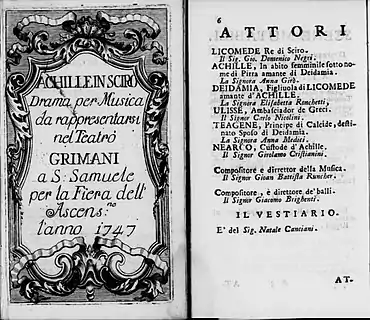 ACHILLE IN SCIRO
Drama per Musica
da rappresentarsi
nel Teatrò
GRIMANI
a S. Samuele
per la Fiera dell'
Ascens.ne
l'anno 1747
6
ATTORI
LICOMEDE Re di Sciro.
Il Sig. Gio. Domenico Negri.
ACHILLE, In abito femminile sotto no-
me di Pirra amante di Deidamia.
La Signora Anna Girò.
DEIDAMIA, Figliuola di LICOMEDE
amante d'ACHILLE.
La Signora Elisabetta Ronchetti,
ULISSE, Ambasciador de Greci.
Il Signor Carlo Nicolini.
TEAGENE, Principe di Calcide, desti-
nato Sposo di Deidamia.
La Signora Anna Medici.
NEARCO, Custode d'Achille.
Il Signor Girolamo Cristianini.
Compositore e dirrettor della Musica.
Il Signor Gioan Battista Runcher.
Compositore, è direttore de' balli.
Il Signor Giacomo Brighenti.
IL VESTIARIO.
E' del Sig. Natale Canciani.
AT-